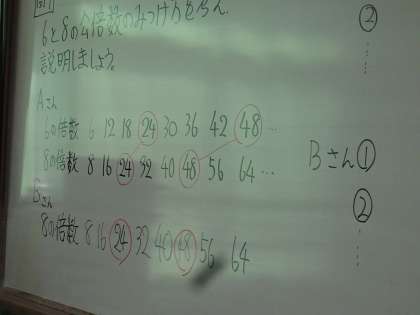 6と8の公倍数のみつけ方を考え、
説明しましょう。
Aさん
6の倍数 6 12 18 24 30 36 42 48 …
8の倍数 8 16 24 32 40 48 56 64 …
Bさん
8の倍数 8 16 24 32 40 48 56 64
②
Bさん①
②